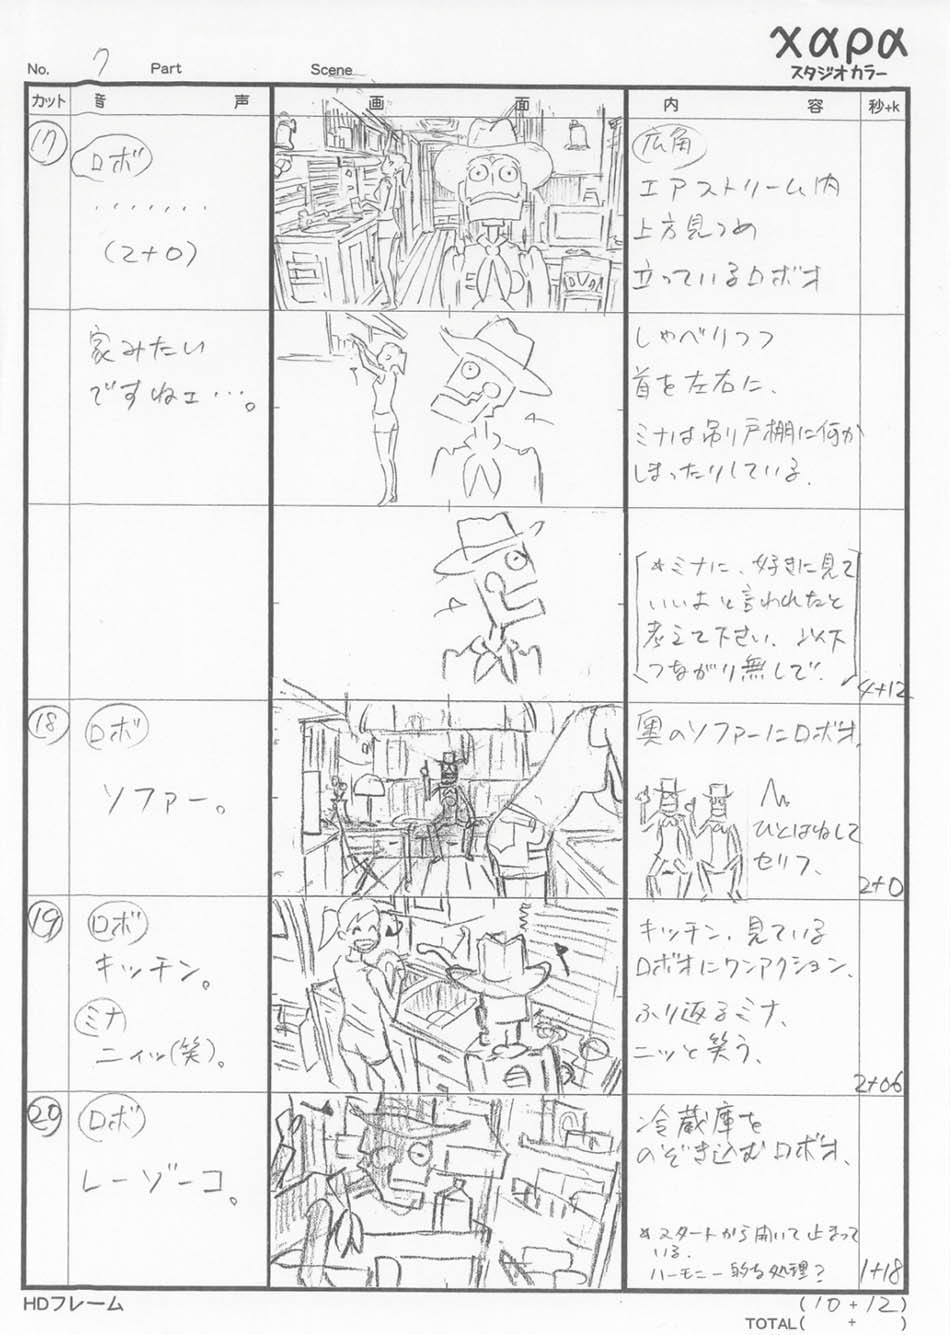 χαρα
スタジオカラー
No. 7 Part Scene
カット 音 声 画 面 内 容 秒+k
17
ロボ
・・・・・・・
(2+0)
広角
エアストリーム内
上方見つめ
立っているロボオ
家みたい
ですねェ…。
しゃべりつつ
首を左右に、
ミナは吊り戸棚に何か
しまったりしている.
*ミナに、好きに見て
いいよと言われたと
考えて下さい、以下
つながり無しで.
4+12
18
ロボ
ソファー。
奥のソファーにロボオ.
ひとはねして
セリフ、
2+0
19
ロボ
キッチン。
ミナ
ニィッ(笑)。
キッチン、見ている
ロボオにワンアクション、
ふり返るミナ、
ニッと笑う、
2+06
20
ロボ
レーゾーコ。
冷蔵庫を
のぞき込むロボオ、
*スタートから開いて止まって
いる.
ハーモニー的な処理?
1+18
HDフレーム
(10+12)
TOTAL( + )